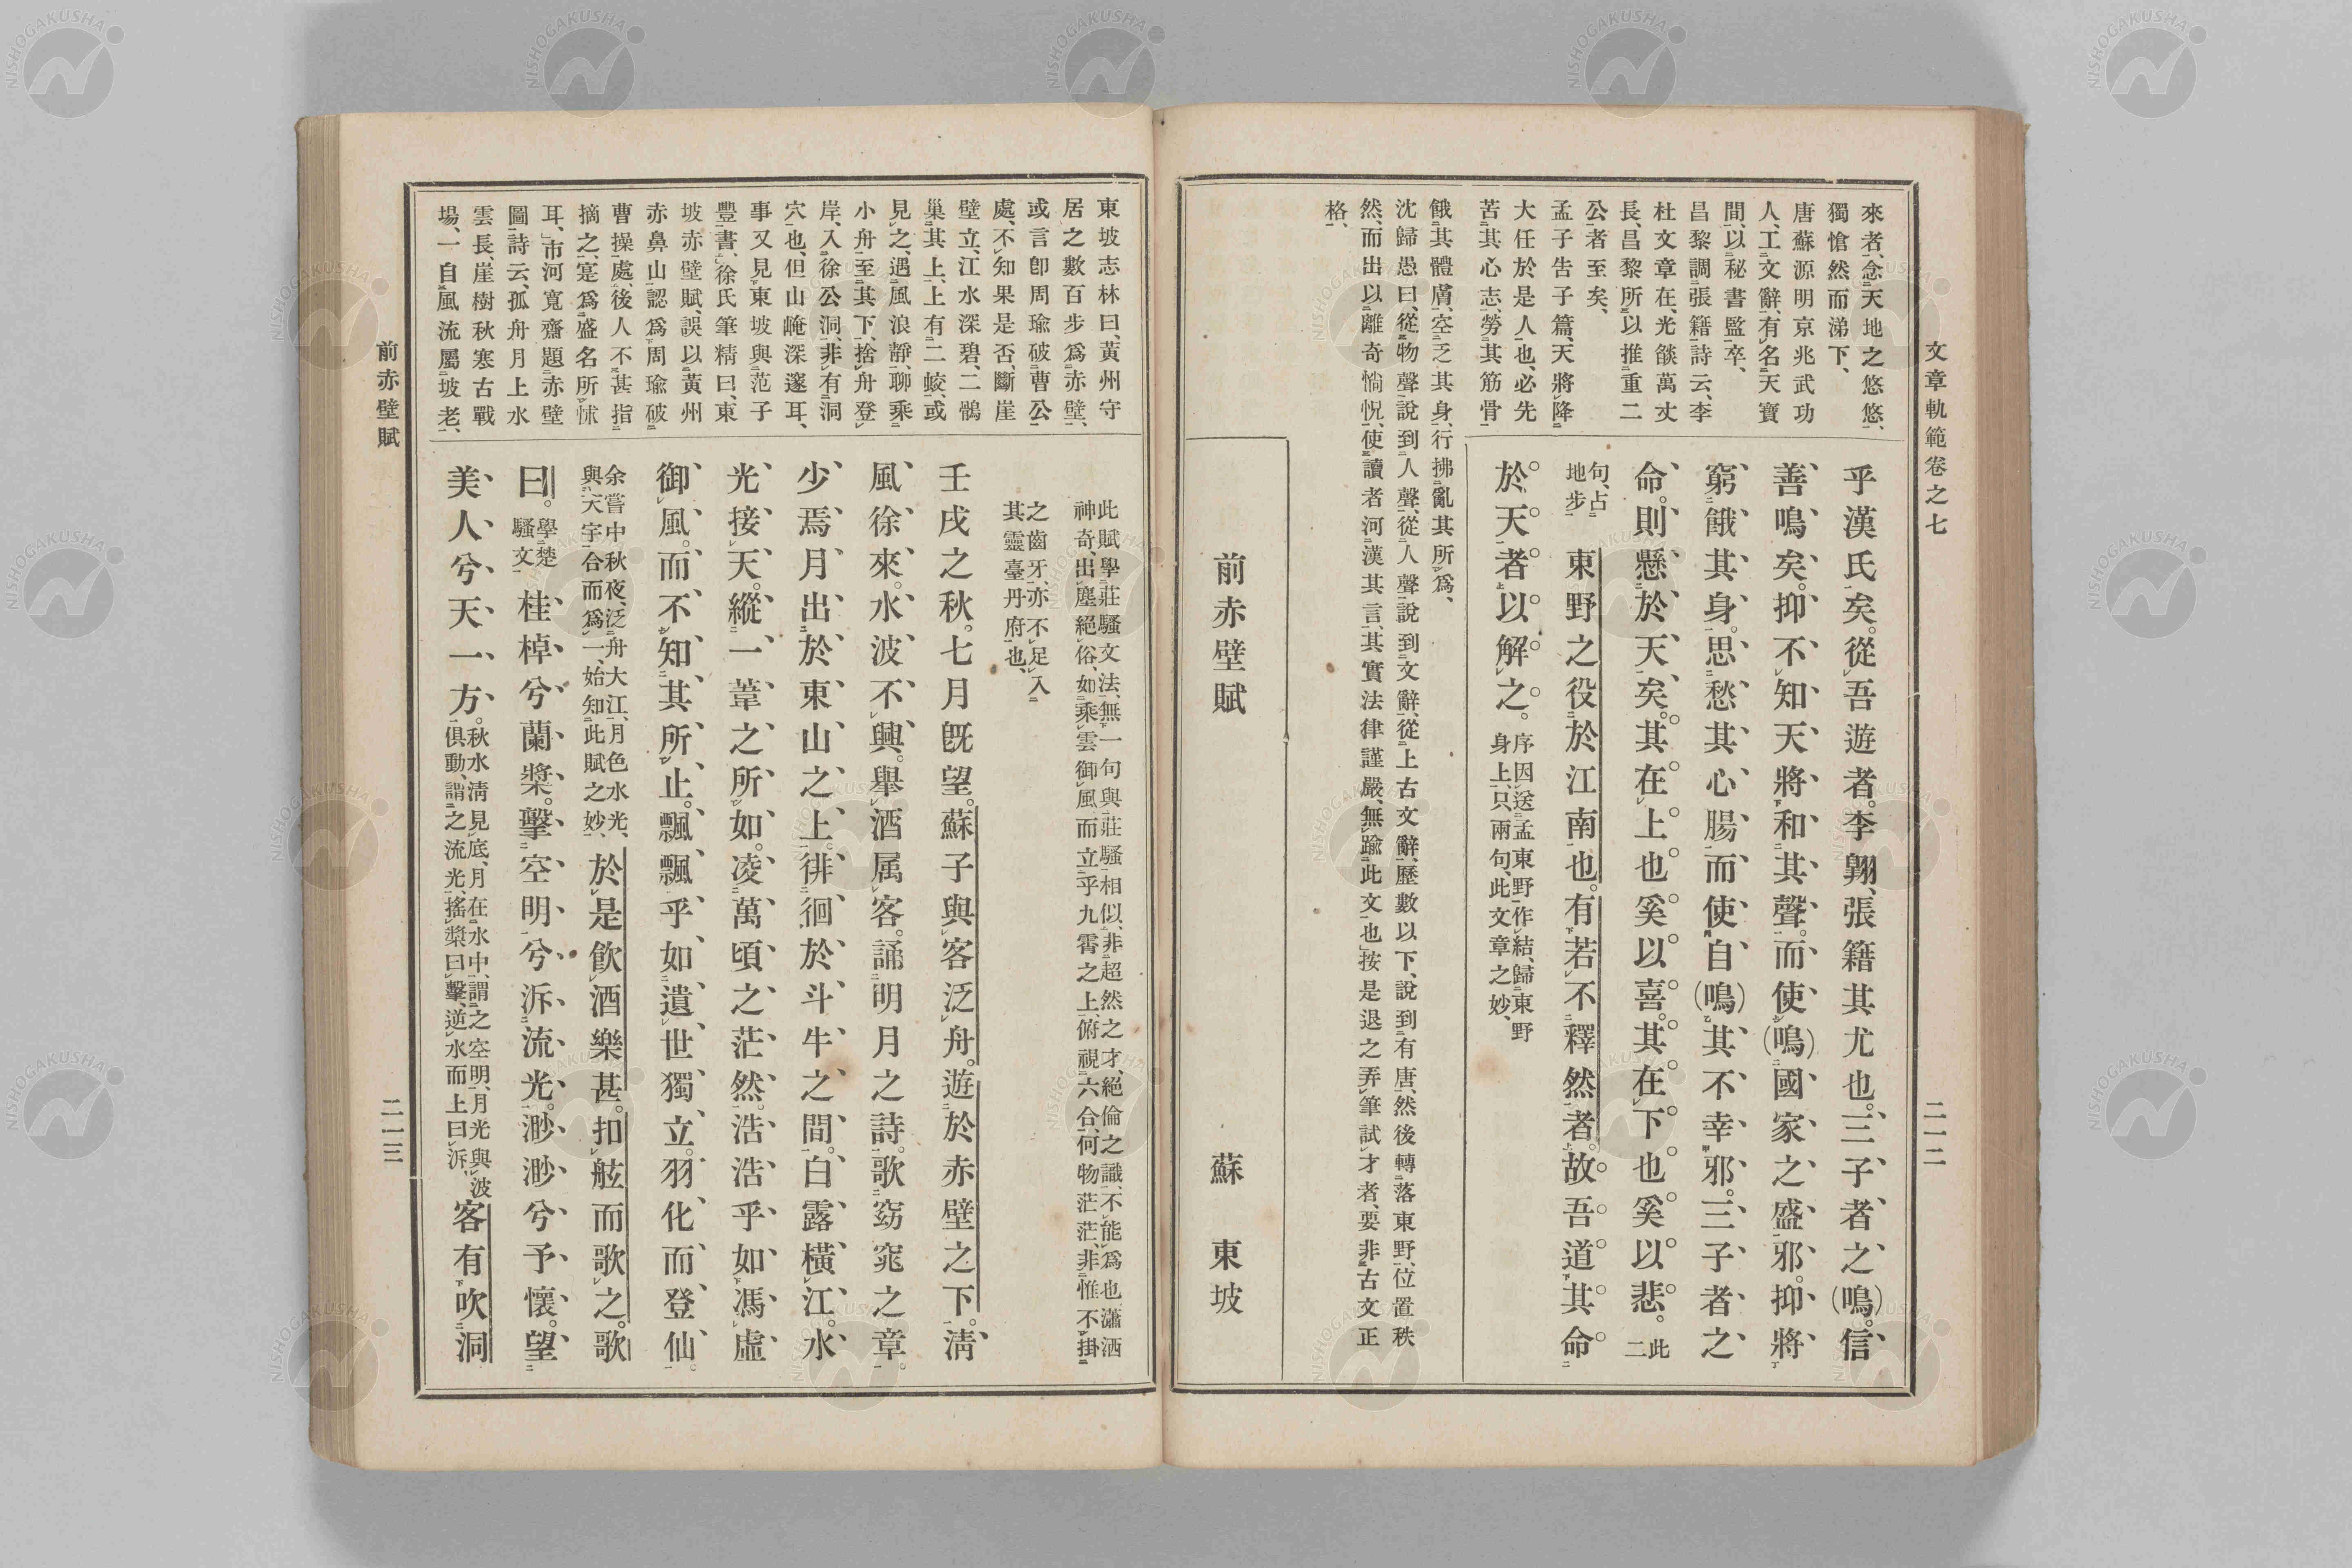 文章軌範卷之七
二一二
來者、念天地之悠悠、
獨愴然而涕下、
唐蘇源明京兆武功
人、工文辭、有名天寶
間、以秘書監卒、
昌黎調張籍詩云、李
杜文章在、光燄萬丈
長、昌黎所以推重二
公者至矣、
孟子告子篇、天將降
大任於是人也、必先
苦其心志、勞其筋骨
餓其體膚、空乏其身、行拂亂其所爲、
沈歸愚曰、從物聲說到人聲、從人聲說到文辭、從上古文辭、歷數以下、說到有唐、然後轉落東野、位置秩
然、而出以離奇惝怳、使讀者河漢其言、其實法律謹嚴、無踰此文也、按是退之弄筆試才者、要非古文正
格、
乎漢氏矣。從吾遊者。李翺、張籍其尤也。三子者之(鳴)。信
善鳴矣。抑不知天將和其聲。而使(鳴)國家之盛邪。抑將
窮餓其身。思愁其心腸而使自(鳴)其不幸邪。三子者之
命。則懸於天矣。其在上也奚以喜。其在下也奚以悲。此二
句、占地步
東野之役於江南也。有若不釋然者。故吾道其命
於天者以解之。序因送孟東野作結、歸東野
身上、只兩句、此文章之妙、
前赤壁賦
蘇東坡
東坡志林曰、黃州守
居之數百步爲赤壁、
或言卽周瑜破曹公
處、不知果是否、斷崖
壁立、江水深碧、二鶻
巢其上、上有二蛟、或
見之、遇風浪靜、聊乘
小舟至其下、捨舟登
岸、入徐公洞、非有洞
穴也、但山崦深邃耳、
事又見東坡與范子
豐書、徐氏筆精曰、東
坡赤壁賦、誤以黃州
赤鼻山認爲周瑜破
曹操處、後人不甚指
摘之、寔爲盛名所怵
耳、市河寬齋題赤壁
圖詩云、孤舟月上水
雲長、崖樹秋寒古戰
場、一自風流屬坡老、
此賦學莊騷文法、無一句與莊騷相似、非超然之才、絕倫之識、不能爲也、瀟洒
神奇、出塵絕俗、如乘雲御風、而立乎九霄之上、俯視六合、何物茫茫、非惟不掛
之齒牙、亦不足入
其靈臺丹府也、
壬戌之秋。七月旣望。蘇子與客泛舟。遊於赤壁之下。淸
風徐來。水波不興。舉酒属客。誦明月之詩。歌窈窕之章。
少焉月出於東山之上。徘徊於斗牛之間。白露橫江。水
光接天。縱一葦之所如。凌萬頃之茫然。浩浩乎如馮虛
御風。而不知其所止。飄飄乎如遺世獨立。羽化而登仙。
余嘗中秋夜、泛舟大江、月色水光、
與天宇合而爲一、始知此賦之妙、
於是飮酒樂甚。扣舷而歌之。歌
曰。學楚騷文
桂棹兮蘭槳。擊空明兮泝流光。渺渺兮予懷。望
美人兮天一方。秋水淸見底、月在水中、謂之空明、月光與波
俱動、謂之流光、搖槳曰擊、逆水而上曰泝、
客有吹洞
前赤壁賦
二一三
NISHOGAKUSHA